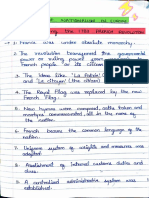 NATIONALISM IN EUROPE
During the 1789 French Revolution
1. France was under absolute monarchy.
2. The revolution transferred the governmental
power or ruling power from
French people or its citizens
3. The idea like "La Patrie"
"Le Citoyen" (the citizen)
4. The Royal Flag was replaced by the new
French Flag.
5. New hymns were composed, oaths taken and
martyrs commemorated, all in the name of
the nation.
6. French became the common language of the
nation.
7. Uniform system of weights and measures
was adopted.
8. Abolishment of internal customs duties and
dues.
9. A centralised administrative system was
established.